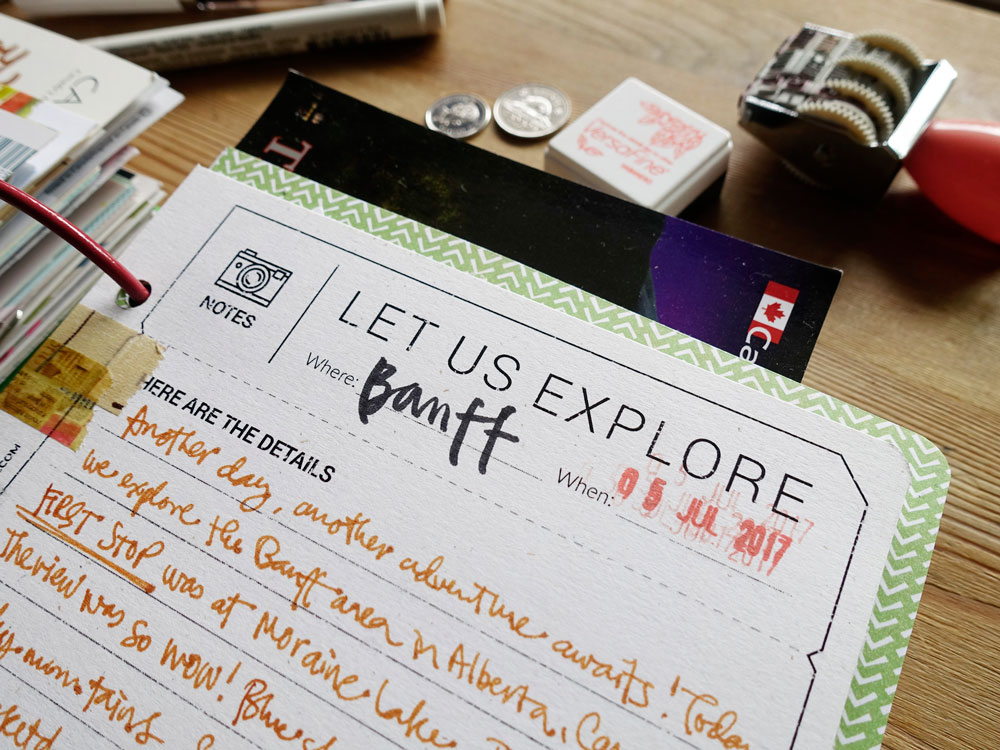 NOTES
LET US EXPLORE
Where: Banff
When: 05 JUL 2017
HERE ARE THE DETAILS
Another day, another adventure awaits! Today
we explore the Banff area in Alberta, Can
FIRST STOP was at Moraine Lake.
The view was SO WOW! Blue
mountains
VersaFine
Ca
CA
.COM